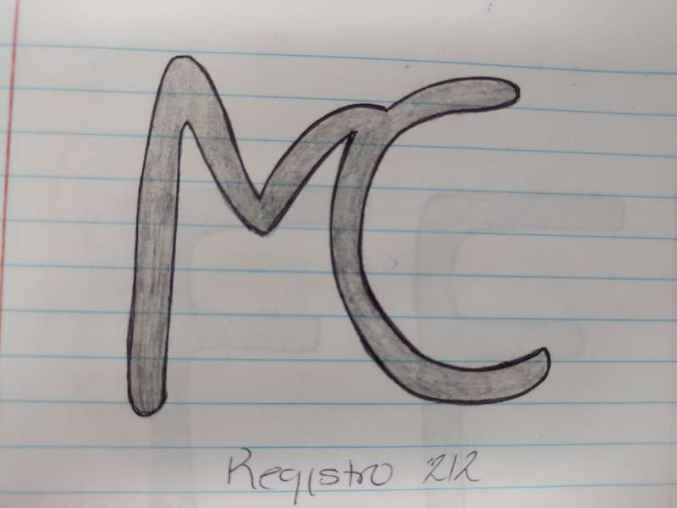 MC
Registro 212